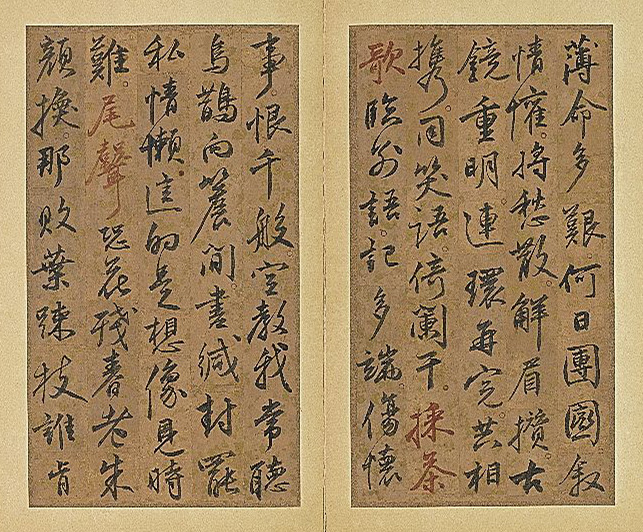 薄命多艱何日團圓叙
情懽。將愁散。解眉攢。古
鏡重明。連環再完。共相
携。同笑語。倚闌干。採茶
歌臨別語。記多端。傷懷
事。恨千般。空教我常聽
烏鵲向簷間。書緘封罷
私情懶。這的是想像見時
難。尾聲恐花殘春老朱
顏換。那敗葉踈枝誰肯